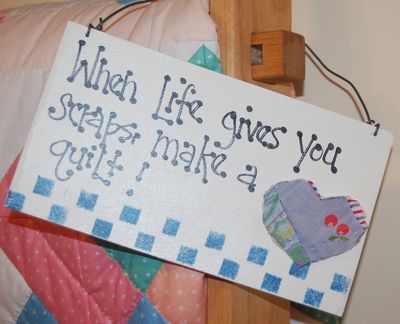 When Life gives you
scraps, make a
quilt!